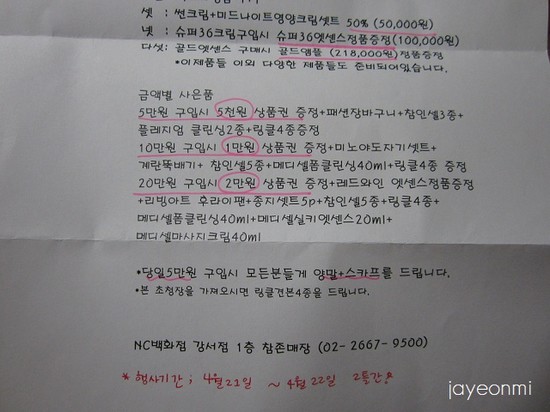 셋 : 썬크림+미드나이트영양크림셋트 50% (50,000원)
넷 : 슈퍼36크림구입시 슈퍼36엣센스정품증정(100,000원)
다섯: 골드엣센스 구매시 골드앰플 (218,000원)정품증정
*이제품들 이외 다양한 제품들도 준비되어있습니다.
금액별 사은품
5만원 구입시 5천원 상품권 증정+패션장바구니+참인셀3종+
플레지엄 클린싱2종+링클4종증정
10만원 구입시 1만원 상품권 증정+미노야도자기셋트+
계란뚝배기+ 참인셀5종+메디셀폼클린싱40ml+링클4종
20만원 구입시 2만원 상품권 증정+레드와인 엣센스정품증정
+리빙아트 후라이팬+종지셋트5p+참인셀5종+링클4종+
메디셀폼클린싱40ml+메디셀실키엣센스20ml+
메디셀마사지크림40ml
*당일5만원 구입시 모든분들게 양말+스카프를 드립니다.
*본 초청장을 가져오시면 링클견본4종을 드립니다.
NC백화점 강서점 1층 참존매장 (02- 2667- 9500)
* 행사기간 ; 4월21일 ~ 4월22일 2틀간
jayeonmi